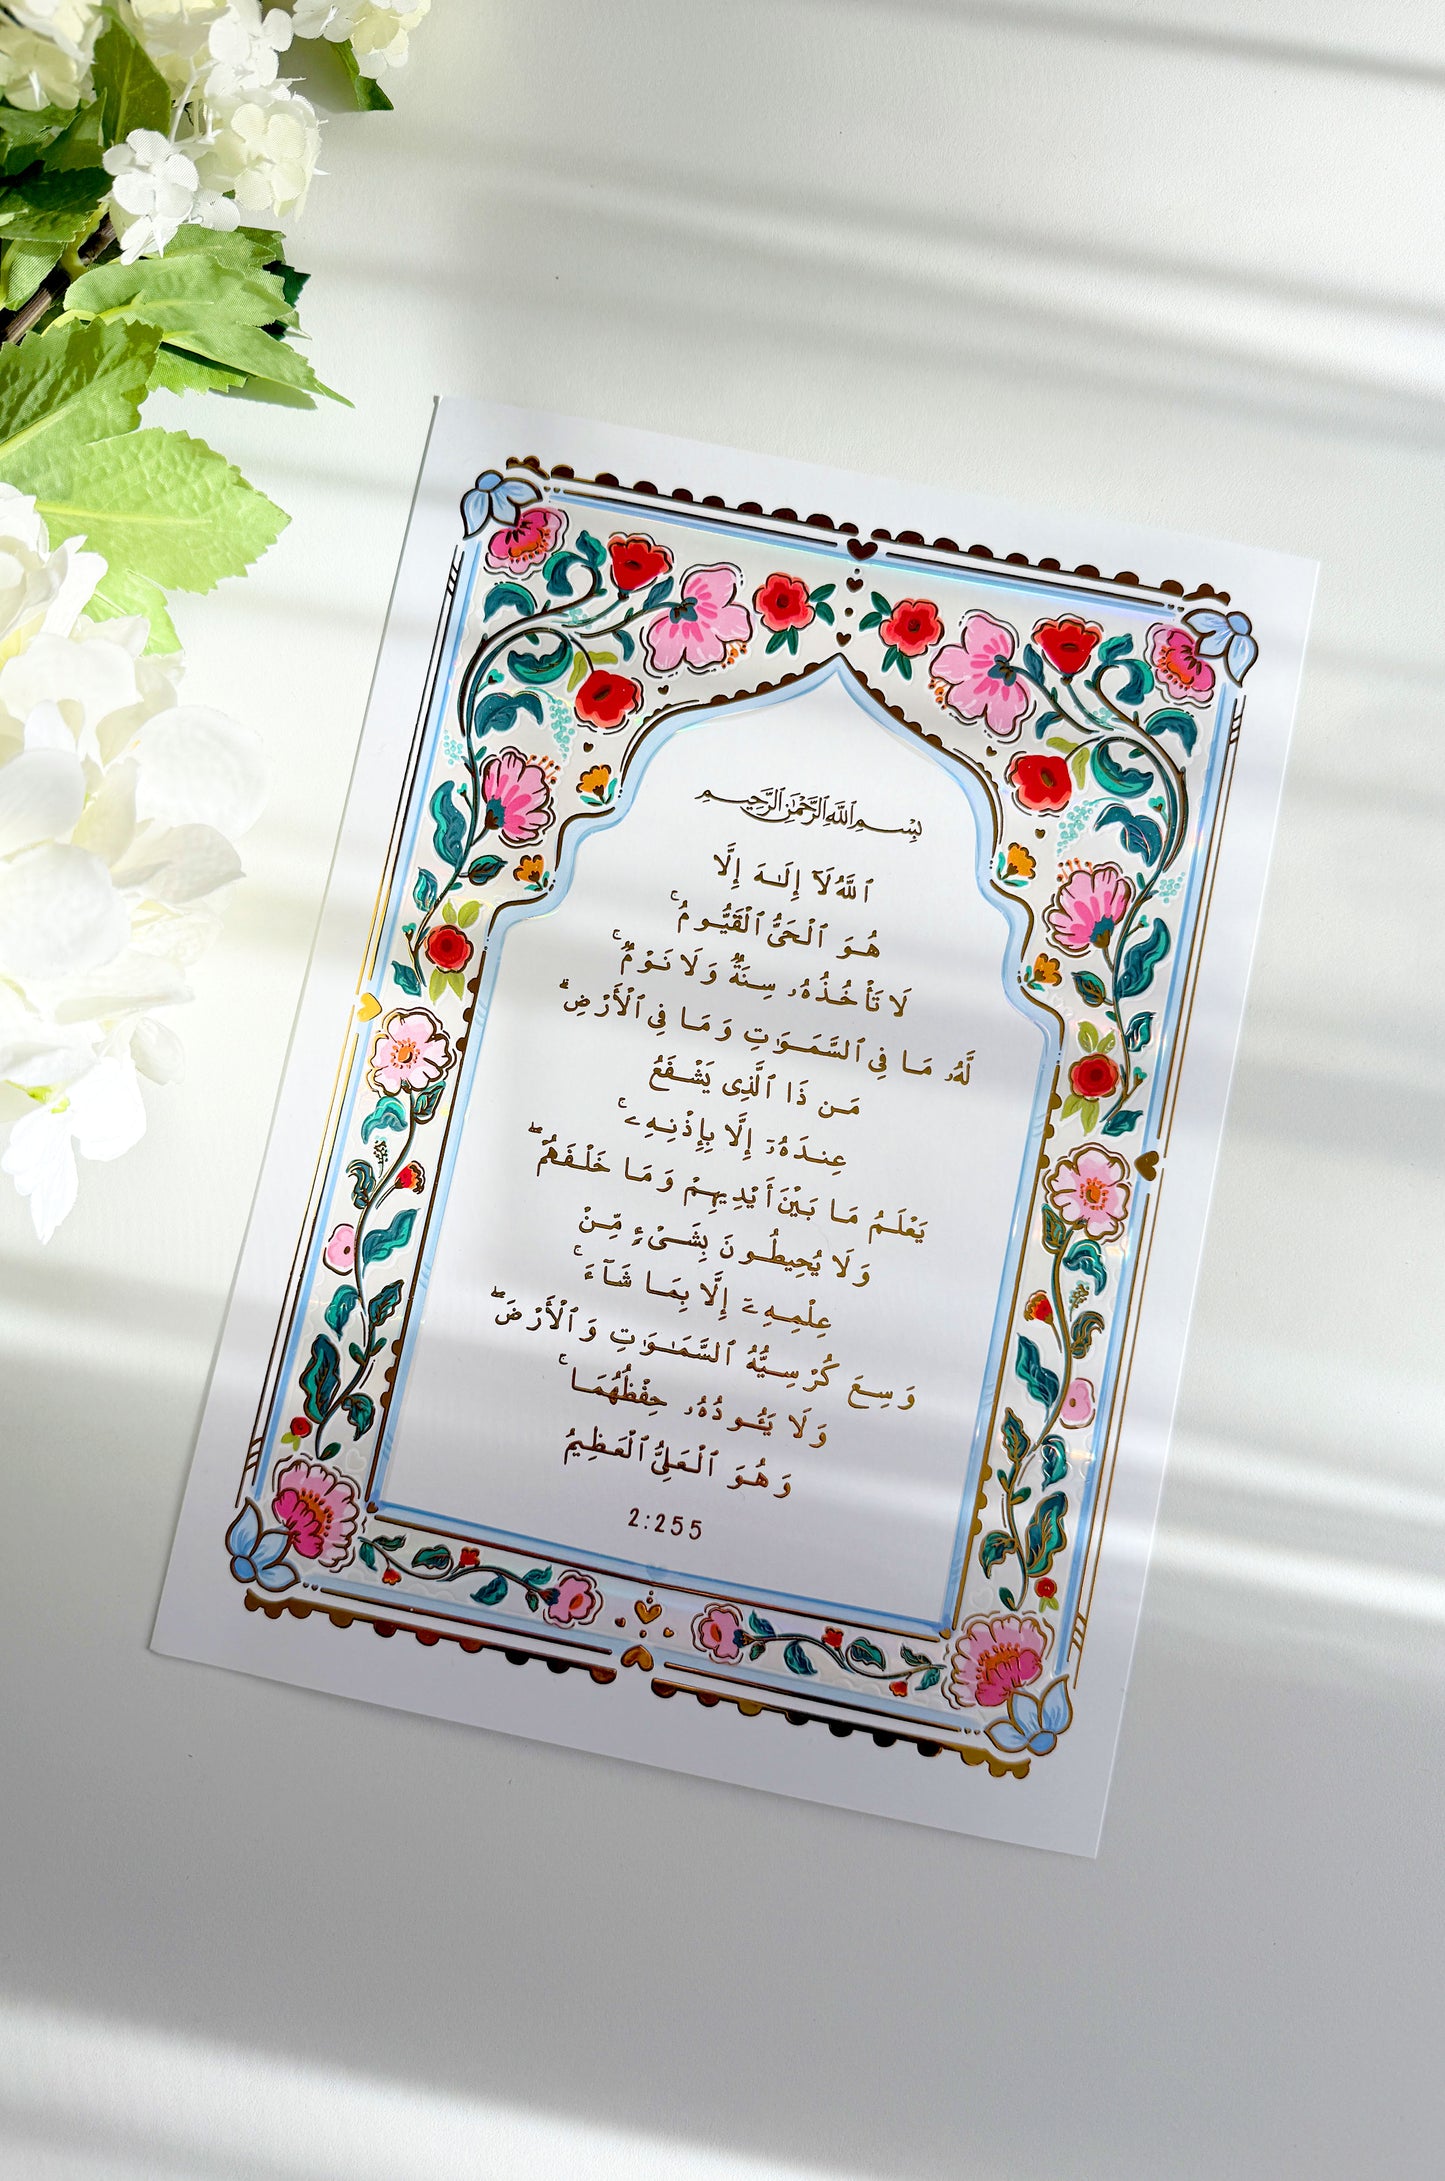 بِسْمِ اللَّهِ الرَّحْمَٰنِ الرَّحِيمِ
ٱللَّهُ لَآ إِلَـٰهَ إِلَّا
هُوَ ٱلْحَىُّ ٱلْقَيُّومُ ۚ
لَا تَأْخُذُهُۥ سِنَةٌ وَلَا نَوْمٌ ۚ
لَّهُۥ مَا فِى ٱلسَّمَـٰوَٰتِ وَمَا فِى ٱلْأَرْضِ ۗ
مَن ذَا ٱلَّذِى يَشْفَعُ
عِندَهُۥٓ إِلَّا بِإِذْنِهِۦ ۚ
يَعْلَمُ مَا بَيْنَ أَيْدِيهِمْ وَمَا خَلْفَهُمْ ۖ
وَلَا يُحِيطُونَ بِشَىْءٍ مِّنْ
عِلْمِهِۦٓ إِلَّا بِمَا شَآءَ ۚ
وَسِعَ كُرْسِيُّهُ ٱلسَّمَـٰوَٰتِ وَٱلْأَرْضَ ۖ
وَلَا يَـُٔودُهُۥ حِفْظُهُمَا ۚ
وَهُوَ ٱلْعَلِىُّ ٱلْعَظِيمُ
2:255